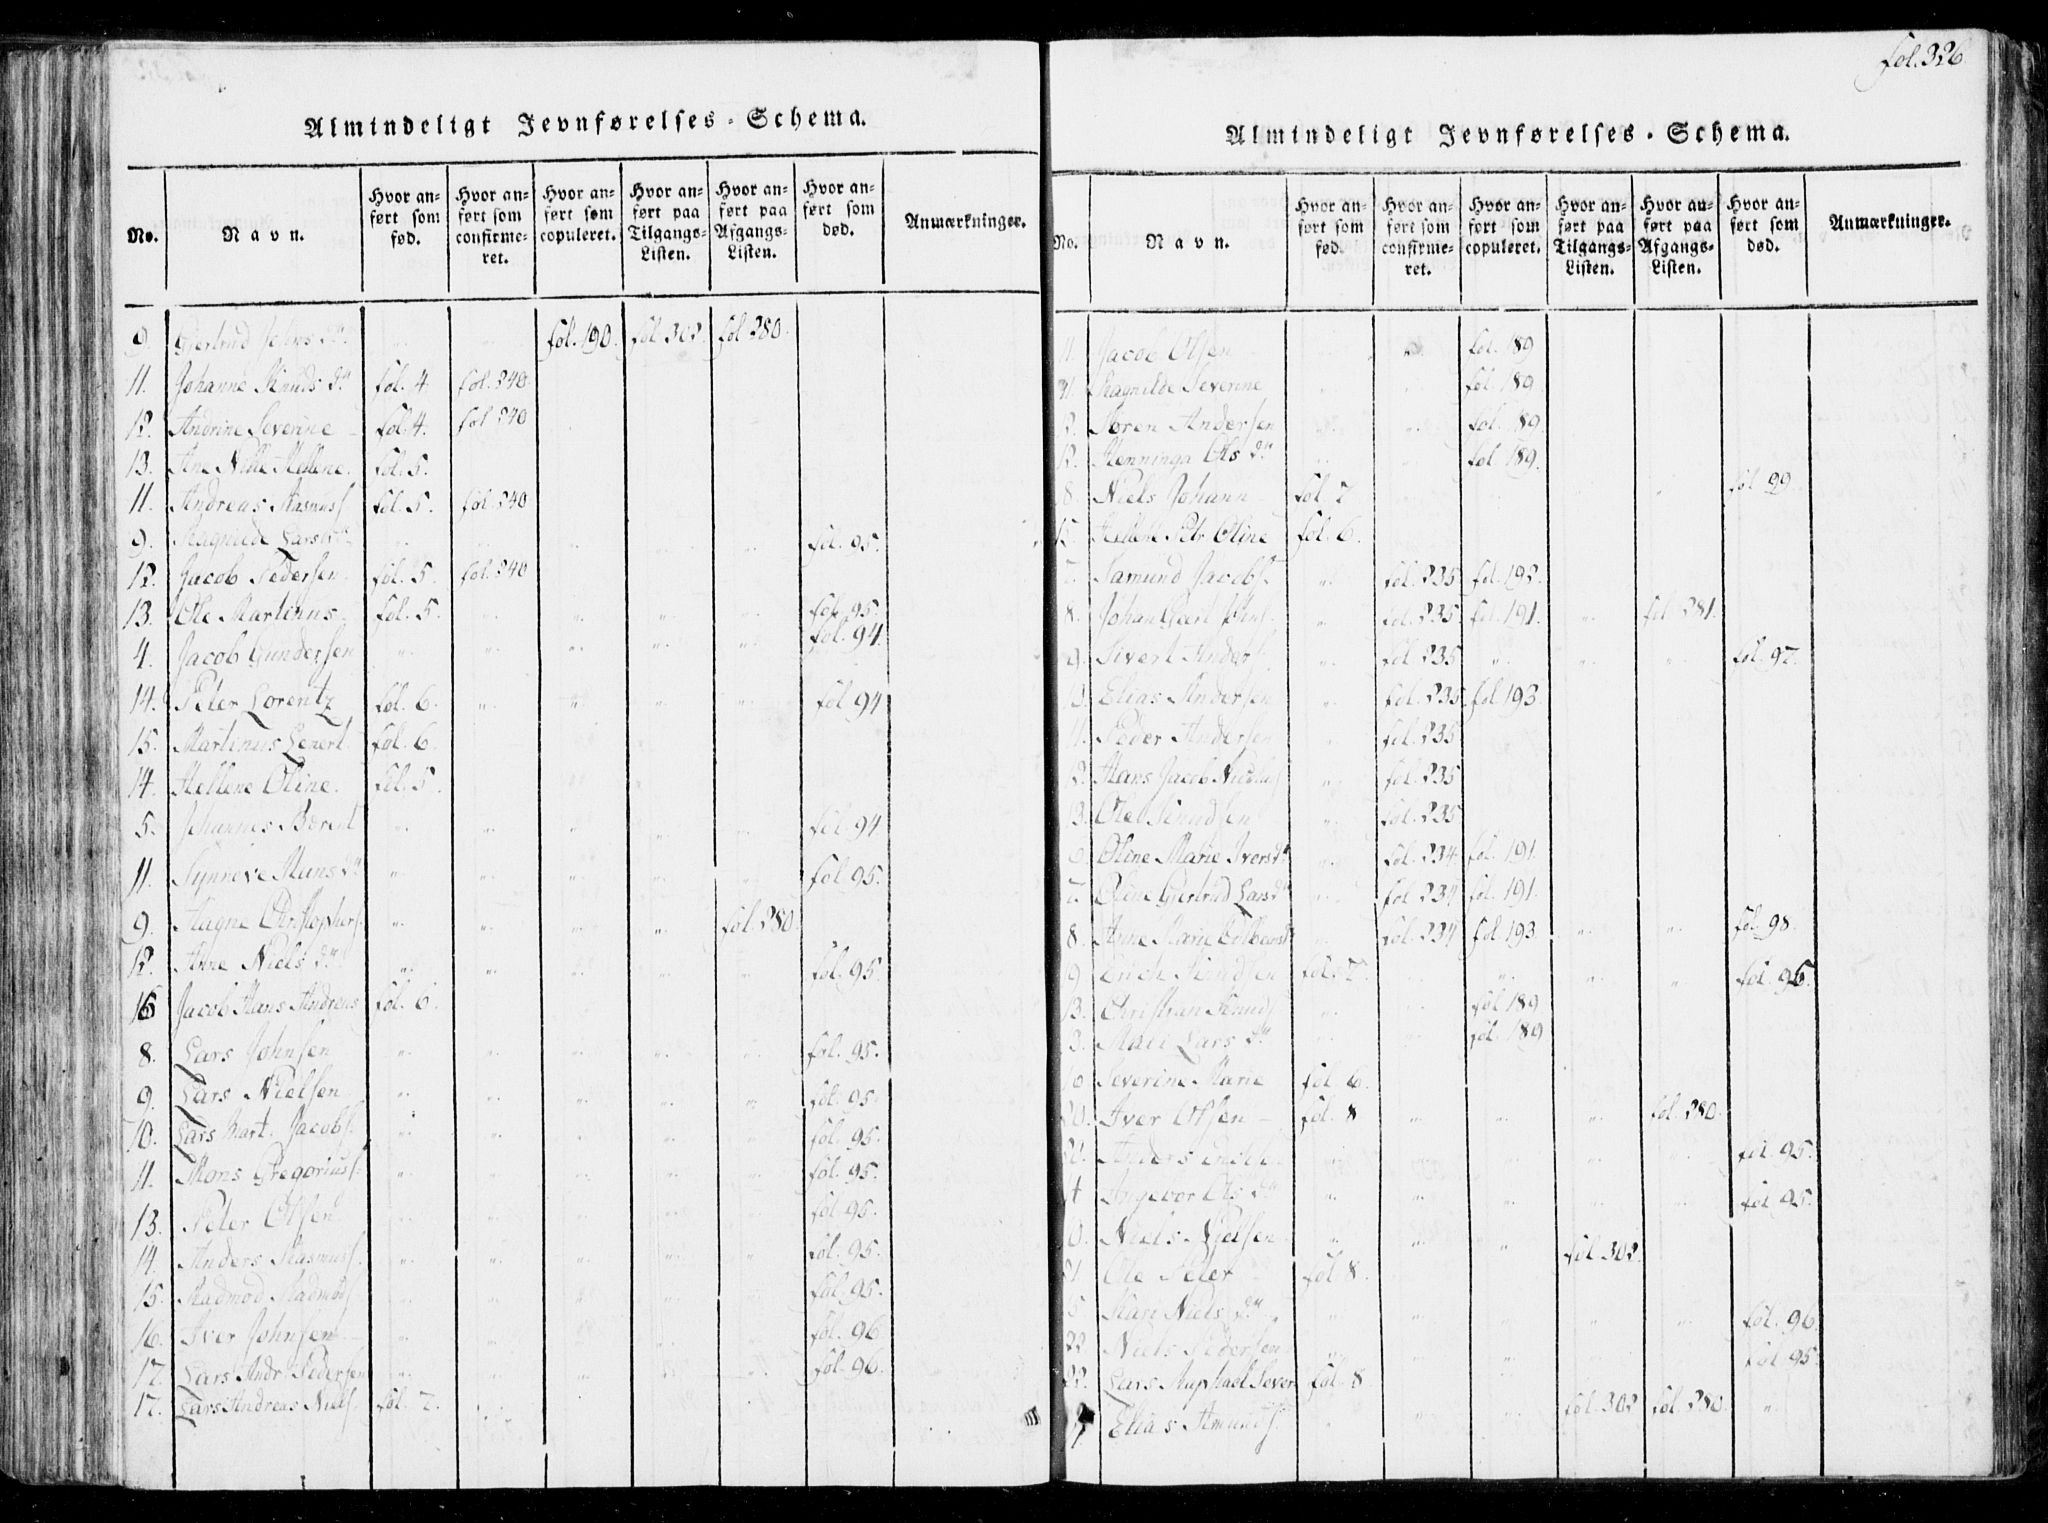 fol. 326
Almindeligt Jevnførelses-Schema.
No. | Navn. | Hvor anført som fød. | Hvor anført som confirmeret. | Hvor anført som copuleret. | Hvor anført paa Tilgangs-Listen. | Hvor anført paa Afgangs-Listen. | Hvor anført som død. | Anmærkninger.
9. Giertrud Johns Dr. " " fol. 190. fol. 302 fol 280.
11. Johanne Knuds Dr fol. 4. fol. 240.
12. Andrine Severine fol. 4. fol 240
13. Ane Hellene. fol. 5.
11. Andreas Rasmuss. fol. 5. fol. 240
9. Ragnilde Lars Dr fol. 95.
12. Jacob Pedersen fol. 5. fol. 240
13. Ole Martinus fol. 5. " " " " fol. 95.
4. Jacob Gundersen " " " " " fol. 94.
14. Peter Lorentz fol. 6. " " " " fol 94
15. Martinus Lenert fol. 6.
14. Hellene Oline. fol. 5.
5. Johannes Berent " " " " " fol. 94
11. Synneve Mons Dr " " " " " fol 95.
9. Magne Christophers. " " " " fol. 280.
12. Anne Niels Dr " " " " " fol. 95.
16 Jacob Hans Andreas fol. 6.
8. Lars Johnsen " " " " " fol. 95.
9. Lars Nielsen " " " " " fol. 95.
10. Lars Mart. Jacobs. " " " " " fol. 95.
11. Mons Gregoriuss. " " " " " fol. 95.
13. Peter Olsen " " " " " fol. 95.
14. Anders Rasmuss. " " " " " fol. 95.
15. Madmod Madmods. " " " " " fol. 95.
16. Iver Johnsen " " " " " fol. 96
17. Lars Andr. Pedersen " " " " " fol. 96.
17. Lars Andreas Niels. fol. 7.
Almindeligt Jevnførelses-Schema.
No. | Navn. | Hvor anført som fød. | Hvor anført som confirmeret. | Hvor anført som copuleret. | Hvor anført paa Tilgangs-Listen. | Hvor anført paa Afgangs-Listen. | Hvor anført som død. | Anmærkninger.
11. Jacob Olsen " " fol. 189
11. Ragnilde Severine " " fol. 189
12. Søren Andersen " " fol. 189.
12. Henninga Ols Dr " " fol 189.
8. Niels Johann fol 7 fol. 99.
15. Hellene Petr. Oline fol. 6.
7. Samund Jacobs. " fol. 235 fol. 192.
8. Johan Geert Johns. " fol. 235. fol. 191. " fol 281.
9. Sivert Anders. " fol. 235 " " " fol. 97.
10. Elias Andersen " fol. 235. fol 193.
11. Peder Andersen " fol. 235
12. Hans Jacob " fol. 235
13. Ole Knudsen " fol. 235
6. Oline Marie Ivers Dr " fol. 234. fol. 191.
7. Oline Giertrud Lars Dr " fol 234 fol. 191.
8. Anne Marie " fol. 234 fol. 193 " " fol. 98.
9. Erich Knudsen fol. 7. " " " " fol. 96.
13. Christian Knuds. " " fol 189
13. Mari Lars Dr " " fol. 189
16 Severine Marie fol 6.
20. Iver Olsen fol. 8 " " " fol. 280.
21. Anders " " " " " fol. 95.
14 Ingebor Ols Dr " " " " fol 95.
10. Niels Nielsen " " " fol 302.
21 Ole Peter fol 8.
15 Mari Niels Dr " " " " " fol. 96.
22 Niels Pedersen " " " " " fol. 95.
22. Lars Raphael Sever. fol. 8
9 Elias Amunds. " " " fol. 302 fol. 280. "